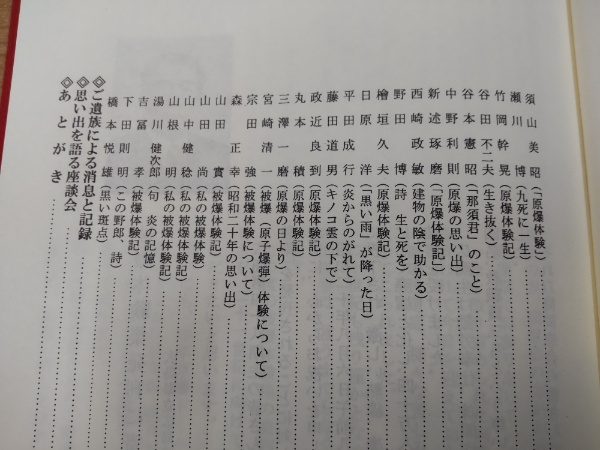 須山美昭（「原爆体験」）
瀬川博（九死に一生）
竹岡幹晃（原爆体験記）
谷田不二夫（生き抜く）
谷本憲昭（「那須君」のこと）
中野利則（原爆の思い出）
新述琢磨（「原爆体験記」）
西崎政敏（建物の陰で助かる）
野田博（詩 生と死を）
檜垣久夫（原爆体験記）
日原洋（「黒い雨」が降った日）
平田成行（炎からのがれて）
藤田道男（キノコ雲の下で）
政近良到（原爆体験記）
丸本積（原爆体験記）
三澤一磨（原爆の日より）
宮崎清一（被爆（原子爆弾）体験について）
宗田強（被爆体験について）
森正幸（昭和二十年の思い出）
山田實（被爆体験記）
山田尚（私の被爆体験）
山中健稔（私の被爆体験記）
山根明（私の被爆体験記）
湯川健次郎（句 炎の記憶）
吉冨孝（被爆体験記）
下田則明（この野郎、詩）
橋本悦雄（黒い斑点）
◎ご遺族による消息と記録
◎思い出を語る座談会
◎あとがき